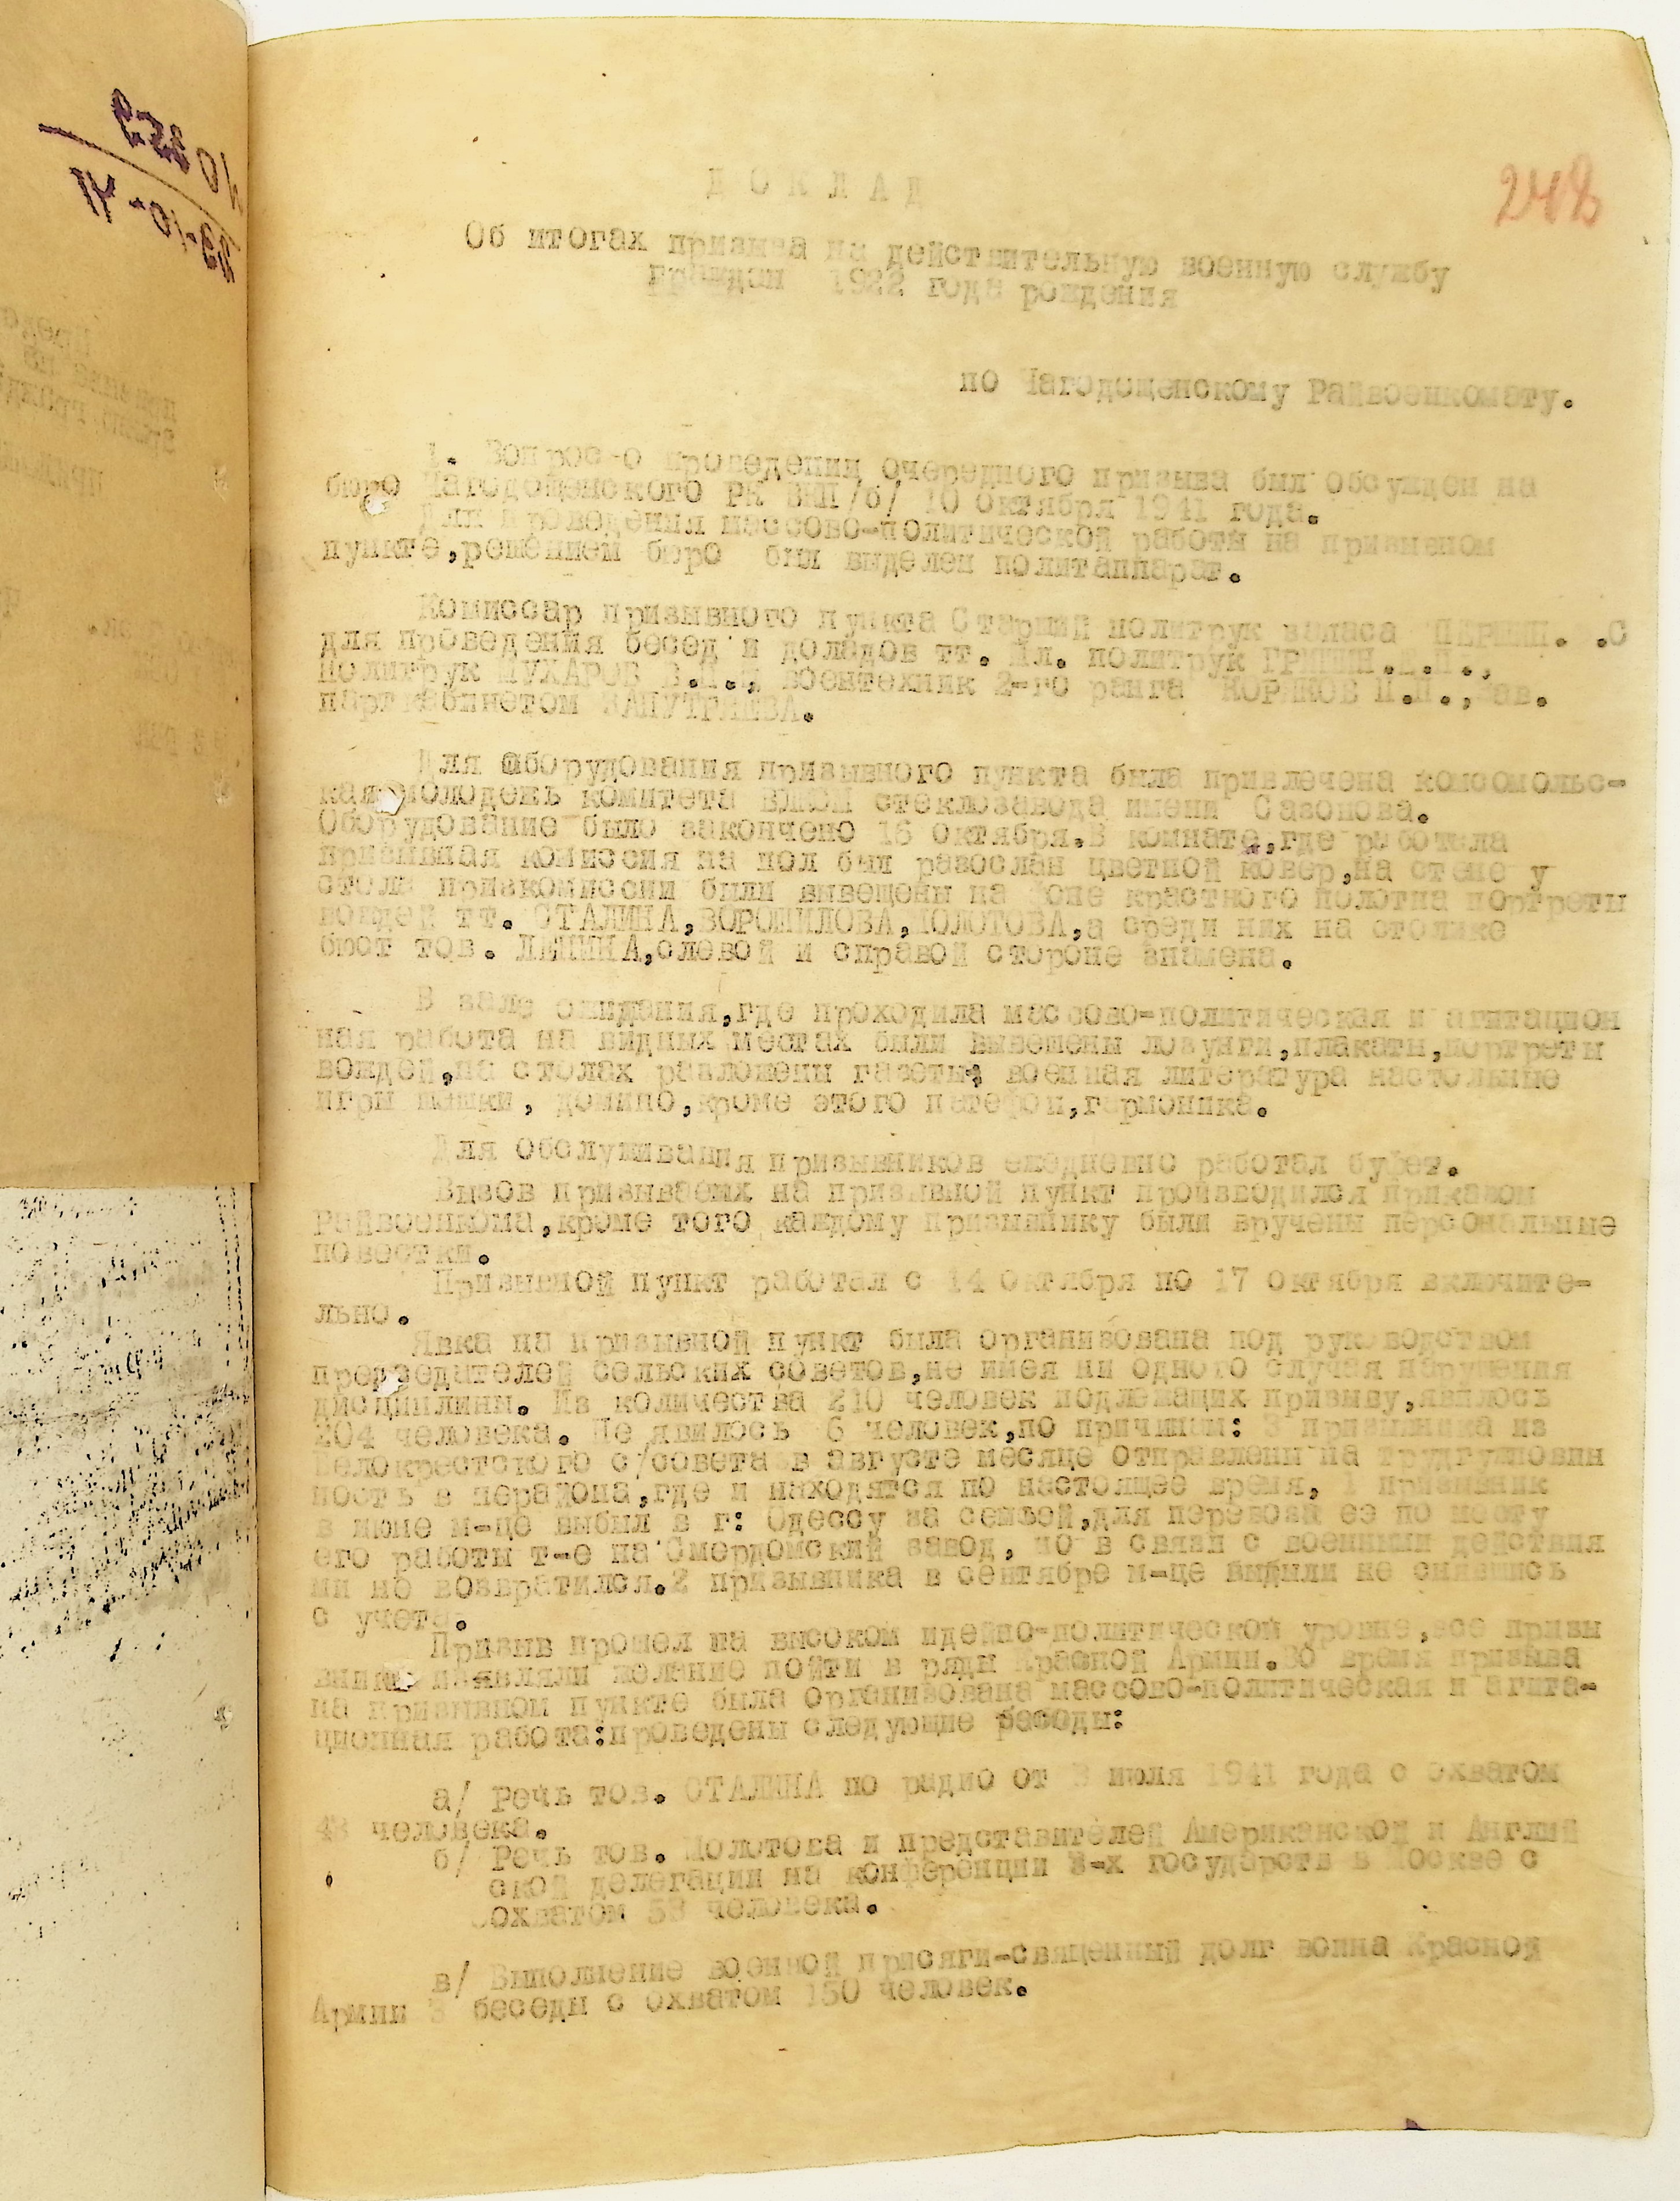 248
Д О К Л А Д
Об итогах призыва на действительную военную службу
граждан 1922 года рождения
по Чагодощенскому Райвоенкомату.
1. Вопрос о проведении очередного призыва был обсужден на
бюро Чагодощенского РК ВКП/б/ 10 октября 1941 года.
Для проведения массово-политической работы на призывном
пункте,решением бюро был выделен политаппарат.
Комиссар призывного пункта Старший политрук запаса
для проведения бесед и доладов тт. Мл. политрук
Политрук МУХАРОВ воентехник 2-го ранга КОРЖКОВ П.П.,Зав.
парткабинетом ЗАПУТРЯЕВА.
Для оборудования призывного пункта была привлечена комсомольс-
кая молодежь комитета ВЛКСМ стеклозавода имени Сазонова.
Оборудование было закончено 16 октября.В комнате,где работала
призывная комиссия на пол был разослан цветной ковер,на стене у
стола призкомиссии были вывешены на фоне крастного полотна портреты
вождей тт. СТАЛИНА,ВОРОШИЛОВА,МОЛОТОВА,а среди них на столике
бюст тов. ЛЕНИНА,слевой и справой стороне знамена.
В зале ожидания,где проходила массово-политическая и агитацион
ная работа на видных местах были вывешены лозунги,плакаты,портреты
вождей,на столах разложены газеты; военная литература настольные
игры шашки, домино,кроме этого патефон,гармоника.
Для Обслуживания призывников ежедневно работал буфет.
Вызов призываемх на призывной пункт производился приказом
Райвоенкома,кроме того каждому призывнику были вручены персональные
повостки.
Призывной пункт работал с 14 октября по 17 октября включите-
льно.
Явка на призывной пункт была организована под руководством
председателей сельских советов,не имея ни одного случая нарушения
дисциплины. Из количества 210 человек подлежащих призыву,явилось
204 человека. Не явилось 6 человек,по причинам: 3 призывника из
Белокрестского с/совета в августе месяце отправлены на трудгужповин
ность в перайона,где и находятся по настоящее время, 1 призывник
в июне м-це выбыл в г: Одессу за семьей,для перевоза ее по месту
его работы т-е на Смердомский завод, но в связи с военными действия
ми не возвратился.2 призывника в сентябре м-це выбыли не снявшись
с учета.
Призыв прошел на высоком идейно-политической уровне,все призы
вники изъявляли желание пойти в ряды Красной Армии.Во время призыва
на призывном пункте была организована массово-политическая и агита-
ционная работа:проведены следующие беседы:
а/ Речь тов. СТАЛИНА по радио от 3 июля 1941 года с охватом
43 человека.
б/ Речь тов. Молотова и представителей Американской и Англий
ской делегации на конференции 3-х государств в Москве с
охватом 53 человека.
в/ Выполнение военной присяги-священный долг воина Красной
Армии 3 беседы с охватом 150 человек.